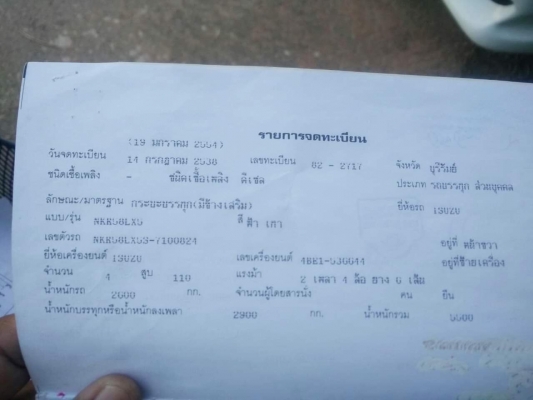 (19 มกราคม 2554) รายการจดทะเบียน
วันจดทะเบียน 14 กรกฎาคม 2538 เลขทะเบียน 82 - 2717 จังหวัด บุรีรัมย์
ชนิดเชื้อเพลิง - ชนิดเชื้อเพลิง ดีเซล ประเภท รถบรรทุก ส่วนบุคคล
ลักษณะ/มาตรฐาน กระบะบรรทุก(มีข้างเสริม) ยี่ห้อรถ ISUZU
แบบ/รุ่น NKR58LX5 สี ฟ้า เทา
เลขตัวรถ NKR58LX53-7100824 อยู่ที่ หน้าขวา
ยี่ห้อเครื่องยนต์ ISUZU เลขเครื่องยนต์ 4BE1-530644 อยู่ที่ซ้ายเครื่อง
จำนวน 4 สูบ 110 แรงม้า 2 เพลา 4 ล้อ ยาง 6 เส้น
น้ำหนักรถ 2600 กก. จำนวนผู้โดยสารนั่ง คน ยืน
น้ำหนักบรรทุกหรือน้ำหนักลงเพลา 2900 กก. น้ำหนักรวม 5500